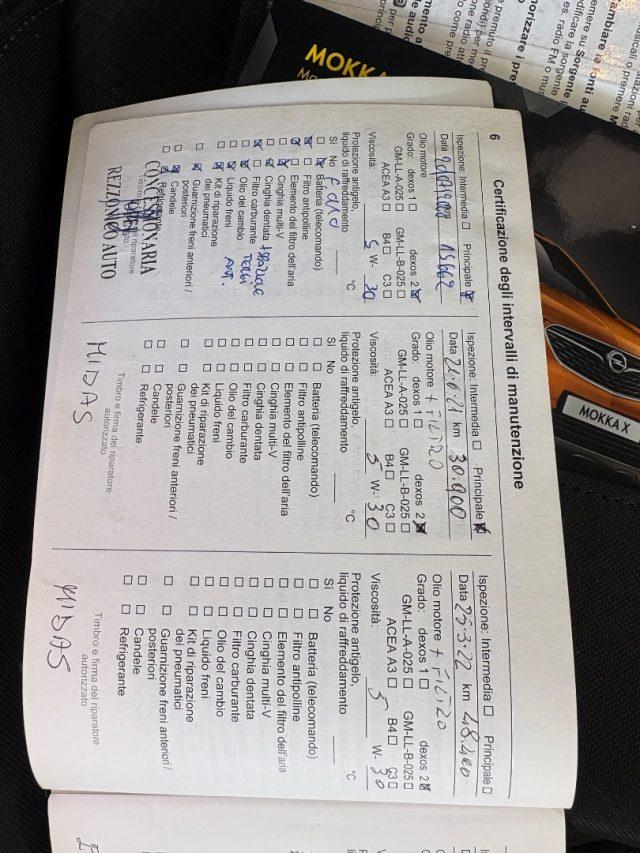 6
Certificazione degli intervalli di manutenzione
Ispezione: Intermedia ☐ Principale ☒
Data km 15662
Olio motore
Grado: dexos 1 ☐ dexos 2 ☒
GM-LL-A-025 ☐ GM-LL-B-025 ☐
ACEA A3 ☐ B4 ☐ C3 ☐
Viscosità: 5 W- 30
Protezione antigelo,
liquido di raffreddamento °C
Sì No
☐ ☒ Batteria (telecomando)
☒ ☐ Filtro antipolline
☒ ☐ Elemento del filtro dell'aria
☐ ☒ Cinghia multi-V
☐ ☒ Cinghia dentata
☒ ☐ Filtro carburante
☐ ☒ Olio del cambio
☐ ☒ Liquido freni
☐ ☒ Kit di riparazione
dei pneumatici
☐ ☒ Guarnizione freni anteriori /
posteriori
☐ ☒ Candele
☐ ☒ Refrigerante
Timbro e firma del riparatore
CONCESSIONARIA
REZZONICO AUTO
Ispezione: Intermedia ☐ Principale ☒
Data 21.6.21 km 30.900
Olio motore + FILTRO
Grado: dexos 1 ☐ dexos 2 ☒
GM-LL-A-025 ☐ GM-LL-B-025 ☐
ACEA A3 ☐ B4 ☐ C3 ☐
Viscosità: 5 W- 30
Protezione antigelo,
liquido di raffreddamento °C
Sì No
☐ ☐ Batteria (telecomando)
☐ ☐ Filtro antipolline
☐ ☐ Elemento del filtro dell'aria
☐ ☐ Cinghia multi-V
☐ ☐ Cinghia dentata
☐ ☐ Filtro carburante
☐ ☐ Olio del cambio
☐ ☐ Liquido freni
☐ ☐ Kit di riparazione
dei pneumatici
☐ ☐ Guarnizione freni anteriori /
posteriori
☐ ☐ Candele
☐ ☐ Refrigerante
Timbro e firma del riparatore
autorizzato
MIDAS
Ispezione: Intermedia ☐ Principale ☐
Data 25.3.22 km 48.400
Olio motore + FILTRO
Grado: dexos 1 ☐ dexos 2 ☒
GM-LL-A-025 ☐ GM-LL-B-025 ☐
ACEA A3 ☐ B4 ☐ C3 ☐
Viscosità: 5 W- 30
Protezione antigelo,
liquido di raffreddamento °C
Sì No
☐ ☐ Batteria (telecomando)
☐ ☐ Filtro antipolline
☐ ☐ Elemento del filtro dell'aria
☐ ☐ Cinghia multi-V
☐ ☐ Cinghia dentata
☐ ☐ Filtro carburante
☐ ☐ Olio del cambio
☐ ☐ Liquido freni
☐ ☐ Kit di riparazione
dei pneumatici
☐ ☐ Guarnizione freni anteriori /
posteriori
☐ ☐ Candele
☐ ☐ Refrigerante
Timbro e firma del riparatore
autorizzato
MIDAS
MOKKA
MOKKA X